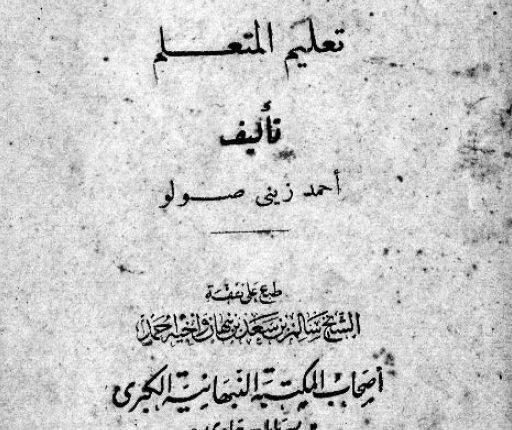 تعليم المتعلم
تأليف
أحمد زينى صولو
طبع على نفقة
الشيخ سالم بن سعد بن نبهان وأخيه أحمد
أصحاب المكتبة النبهانية الكبرى